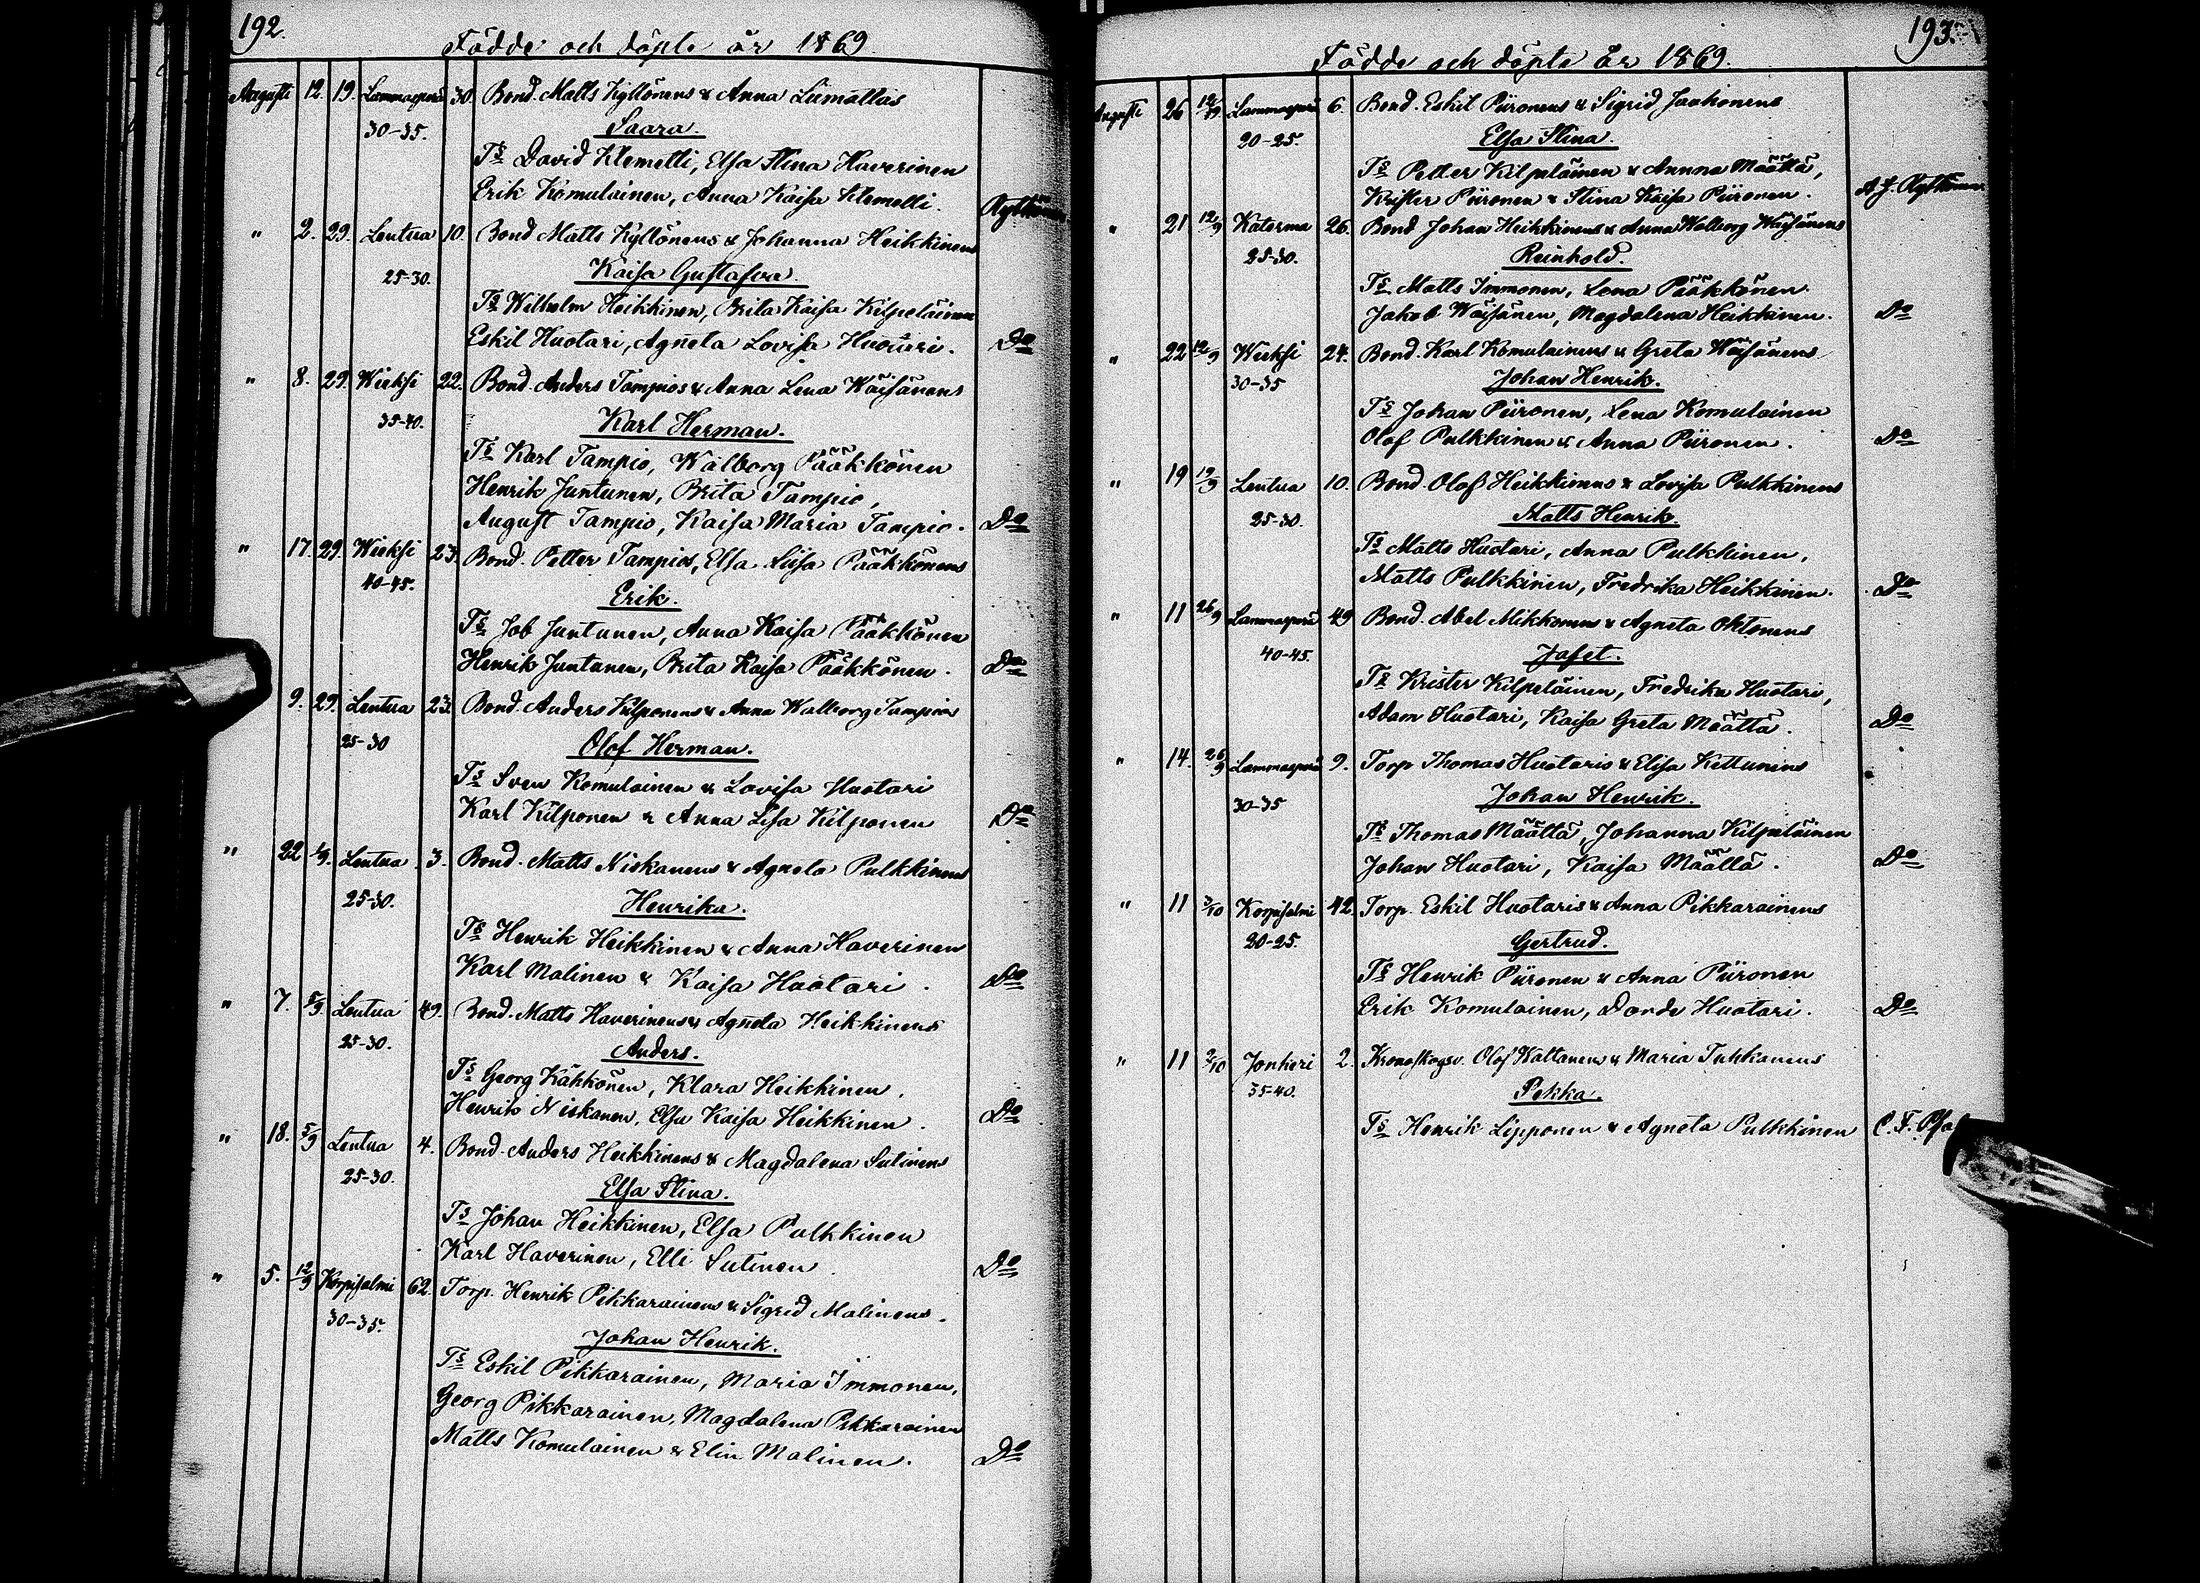 192.
Födde och döpte år 1869.
Augusti 12. 19. Lammasperä 30. Bond. Matts Kyllönens & Anna Liimattas
30-35. Saara.
Ts David Klemetti, Elsa Stina Haverinen
Erik Komulainen, Anna Kaisa Klemetti. Kyttönen
" 2. 29. Lentua 10. Bond Matts Kyllönens & Johanna Heikkinens
25-30. Kaisa Gustafva.
Ts Wilhelm Heikkinen, Brita Kaisa Kilpeläinen
Eskil Huotari, Agneta Lovisa Huotari. Do
" 8. 29. Wieksi 22. Bond. Anders Tampios & Anna Lena Wäisänens
35-40. Karl Herman.
Ts Karl Tampio, Walborg Pääkkönen
Henrik Juntunen, Brita Tampio,
August Tampio, Kaisa Maria Tampio. Do
" 17. 29. Wieksi 23. Bond. Petter Tampios, Elsa Liisa Pääkkönens
40-45. Erik.
Ts Job Juntunen, Anna Kaisa Pääkkönen
Henrik Juntunen, Brita Kaisa Pääkkönen. Do
9. 29. Lentua 23. Bond. Anders Kilponens & Anna Walborg Tampios
25-30 Olof Herman.
Ts Sven Komulainen & Lovisa Huotari
Karl Kilponen & Anna Lisa Kilponen Do
" 22 1/9. Lentua 3. Bond. Matts Niskanens & Agneta Pulkkinens
25-30. Henrika.
Ts Henrik Heikkinen & Anna Haverinen
Karl Malinen & Kaisa Huotari. Do
" 7. 5/9. Lentua 49. Bond. Matts Haverinens & Agneta Heikkinens
25-30. Anders.
Ts Georg Kähkönen, Klara Heikkinen.
Henrik Niskanen, Elsa Kaisa Heikkinen. Do
" 18. 5/9 Lentua 4. Bond. Anders Heikkinens & Magdalena Sutinens
25-30. Elsa Stina.
Ts Johan Heikkinen, Elsa Pulkkinen
Karl Haverinen, Elli Sutinen Do
" 5. 12/9 Korpisalmi 62. Torp. Henrik Pikkarainens & Sigrid Malinens.
30-35. Johan Henrik.
Ts Eskil Pikkarainen, Maria Immonen,
Georg Pikkarainen, Magdalena Pikkarainen
Matts Komulainen & Elin Malinen. Do
193.
Födde och döpte år 1869.
Augusti 26 12/9 Lammasperä 6. Bond. Eskil Piironens & Sigrid Jaakonens
20-25. Elsa Stina.
Ts Petter Kilpeläinen & Annna Määttä,
Krister Piironen & Stina Kaisa Piironen. A. J. Kyttönen
" 21 12/9 Katerma 26. Bond. Johan Heikkinens & Anna Walborg Wäisänens
25-30. Reinhold.
Ts Matts Immonen, Lena Pääkkönen.
Jakob Wäisänen, Magdalena Heikkinen. Do
" 22 12/9 Wieksi 24. Bond. Karl Komulainens & Greta Wäisänens
30-35 Johan Henrik.
Ts Johan Piironen, Lena Komulainen
Olof Pulkkinen & Anna Piironen. Do
" 19 19/9 Lentua 10. Bond. Olof Heikkinens & Lovisa Pulkkinens
25-30. Matts Henrik.
Ts Matts Huotari, Anna Pulkkinen,
Matts Pulkkinen, Fredrika Heikkinen. Do
" 11 26/9 Lammasperä 49 Bond. Abel Mikkonens & Agneta Oktonens
40-45. Jafet.
Ts Krister Kilpeläinen, Fredrika Huotari,
Adam Huotari, Kaisa Greta Määttä. Do
" 14. 26/9 Lammasperä 9. Torp Thomas Huotaris & Elisa Kettunens
30-35 Johan Henrik.
Ts Thomas Määttä, Johanna Kilpeläinen
Johan Huotari, Kaisa Määttä. Do
" 11 3/10 Korpisalmi 42. Torp. Eskil Huotaris & Anna Pikkarainens
20-25. Gertrud.
Ts Henrik Piironen & Anna Piironen
Erik Komulainen, Dorde Huotari. Do
" 11 2/10 Jonkeri 2. Kronoskogsv. Olof Kattanens & Maria Tuhkanens
35-40. Pekka.
Ts Henrik Lipponen & Agneta Pulkkinen C. F.